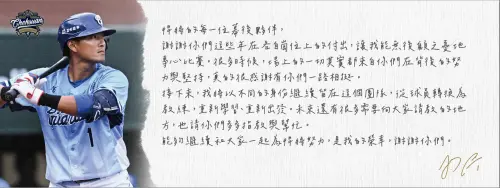 悍將的每一位幕後夥伴，
謝謝你們這些年在各自崗位上的付出，讓我能無後顧之憂地
專心比賽，很多時候，場上的一切其實都來自你們在背後的努
力與堅持，真的很感謝有你們一路相挺。
接下來，我將以不同的身份繼續留在這個團隊，從球員轉換為
教練，重新學習、重新出發，未來還有很多需要向大家請教的地
方，也請你們多多指教與幫忙。
能夠繼續和大家一起為悍將努力，是我的榮幸，謝謝你們。
Guardians
1